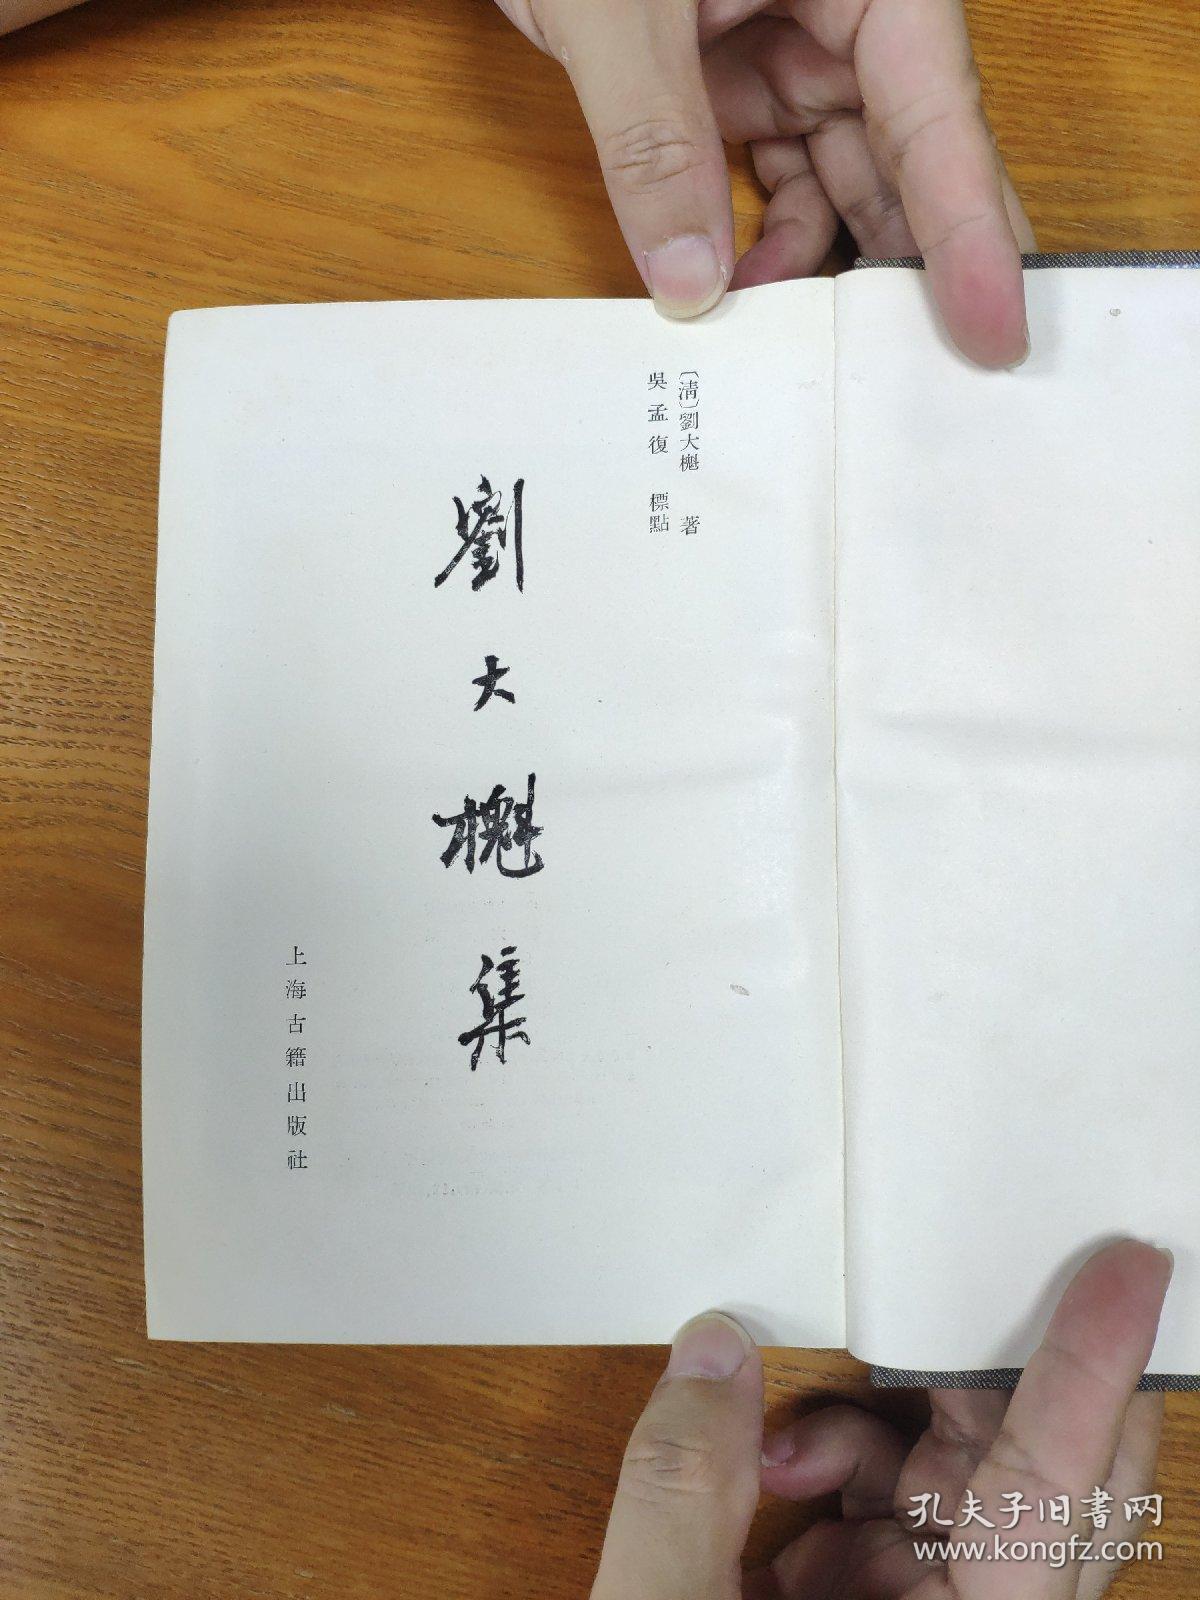 〔清〕劉大櫆 著
吳孟復 標點
劉大櫆集
上海古籍出版社
孔夫子旧书网
www.kongfz.com